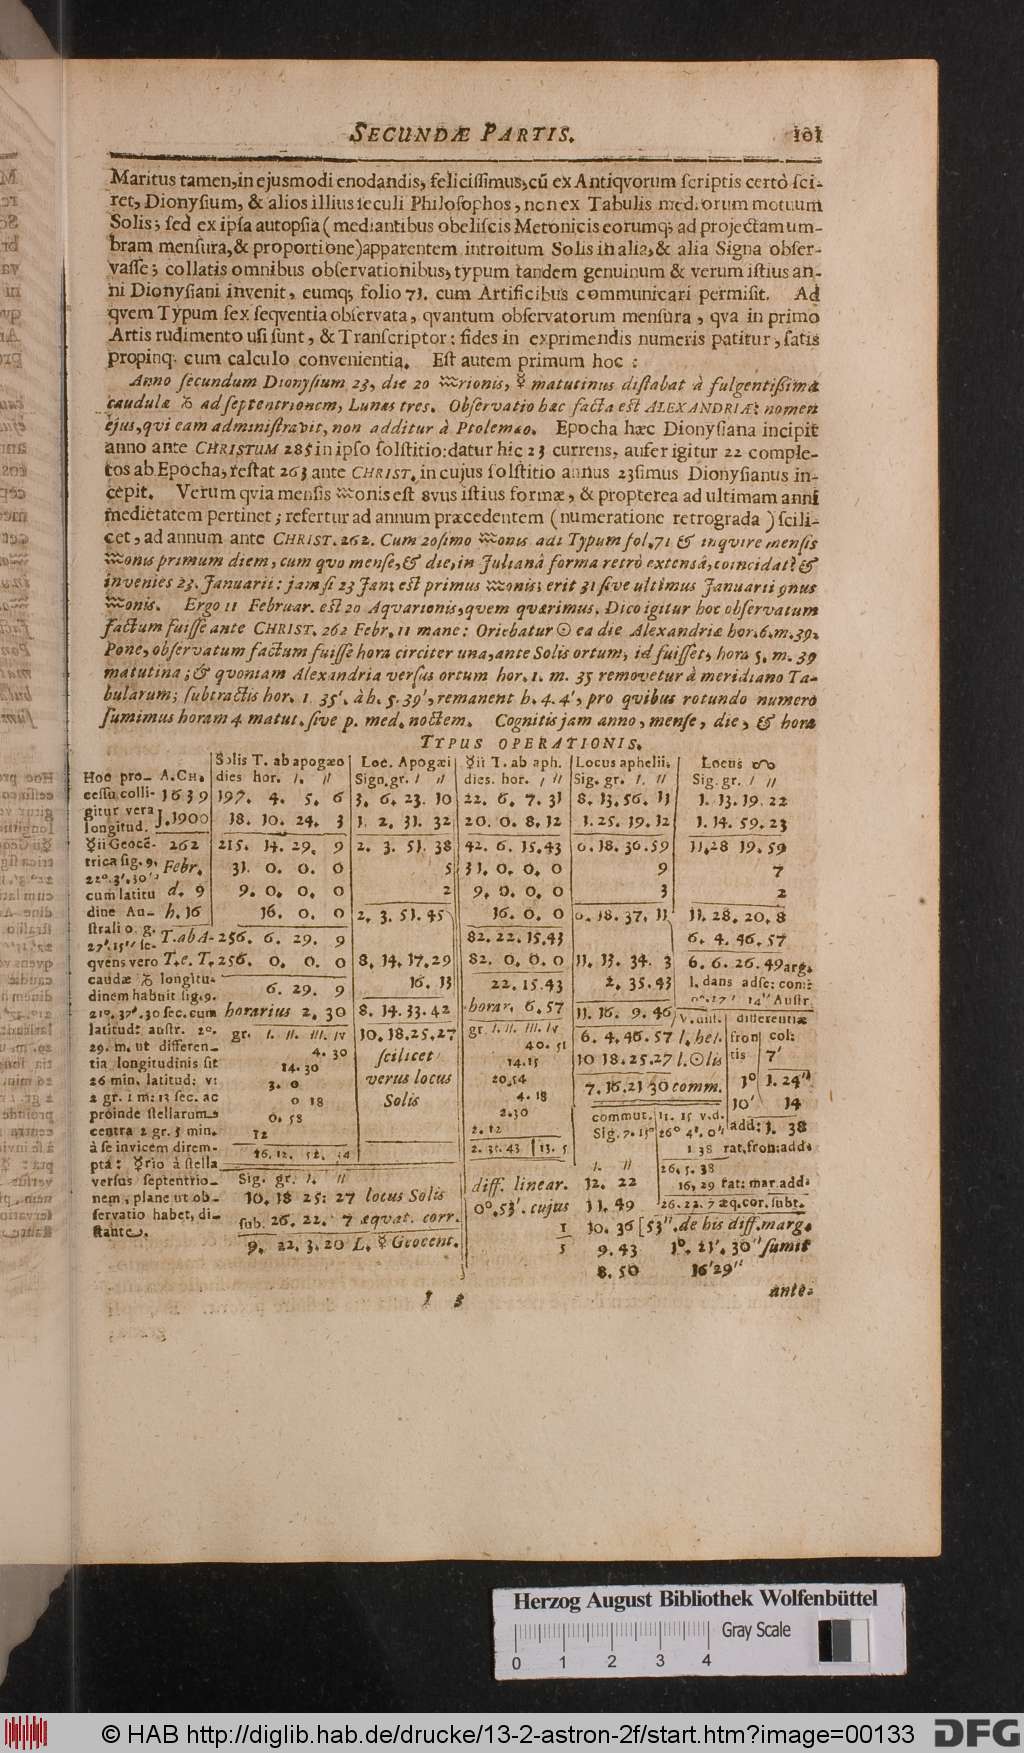 SECUNDÆ PARTIS. 101
Maritus tamen, in ejusmodi enodandis, feliciſſimus, cũ ex Antiqvorum ſcriptis certò ſci-
ret, Dionyſium, & alios illius ſeculi Philoſophos, non ex Tabulis mediorum motuum
Solis; ſed ex ipſa autopſia (mediantibus obeliſcis Metonicis eorumq; ad projectam um-
bram menſura, & proportione) apparentem introitum Solis in alia, & alia Signa obſer-
vaſſe; collatis omnibus obſervationibus, typum tandem genuinum & verum iſtius an-
ni Dionyſiani invenit, eumq; folio 71. cum Artificibus communicari permiſit. Ad
qvem Typum ſex ſeqventia obſervata, qvantum obſervatorum menſura, qva in primo
Artis rudimento uſi ſunt, & Tranſcriptor: fides in exprimendis numeris patitur, ſatis
propinq. cum calculo convenientia. Eſt autem primum hoc:
Anno ſecundum Dionyſium 23, die 20 ♒rionis, ☿ matutinus diſtabat à fulgentiſſima
caudulæ ♑ ad ſeptentrionem, Lunas tres. Obſervatio hæc facta eſt ALEXANDRIÆ: nomen
ejus, qvi eam adminiſtravit, non additur à Ptolemæo. Epocha hæc Dionyſiana incipit
anno ante CHRISTUM 285 in ipſo ſolſtitio: datur hic 23 currens, aufer igitur 22 comple-
tos ab Epocha, reſtat 263 ante CHRIST. in cujus ſolſtitio annus 23ſimus Dionyſianus in-
cepit. Verum qvia menſis ♒onis eſt 8vus iſtius formæ, & propterea ad ultimam anni
medietatem pertinet; refertur ad annum præcedentem (numeratione retrograda) ſcili-
cet, ad annum ante CHRIST. 262. Cum 20ſimo ♒onis adi Typum fol. 71 & inqvire menſis
♒onis primum diem, cum qvo menſe, & die, in Julianâ forma retrò extensâ, coincidat? &
invenies 23. Januarii: jam ſi 23 Jan: eſt primus ♒onis; erit 31 ſive ultimus Januarii 9nus
♒onis. Ergo 11 Februar. eſt 20 Aqvarionis, qvem qværimus. Dico igitur hoc obſervatum
factum fuiſſe ante CHRIST. 262 Febr. 11 mane: Oriebatur ☉ ea die Alexandriæ hor. 6. m. 39.
Pone, obſervatum factum fuiſſe hora circiter una, ante Solis ortum, id fuiſſet, hora 5. m. 39
matutina; & qvoniam Alexandria verſus ortum hor. 1. m. 35 removetur à meridiano Ta-
bularum; ſubtractis hor. 1. 35', à h. 5. 39', remanent h. 4. 4', pro qvibus rotundo numero
ſumimus horam 4 matut. ſive p. med. noctem. Cognitis jam anno, menſe, die, & hora
TYPUS OPERATIONIS.
Solis T. ab apogæo | Loc. Apogæi | ☿ii T. ab aph. | Locus aphelii. | Locus ☊
Hoc pro- A. CH. dies hor. ı. ıı | Sign. gr. ı ıı | dies. hor. ı ıı | Sig. gr. ı. ıı | Sig. gr. ı ıı
ceſſu colli- 1639 197. 4. 5. 6 | 3. 6. 23. 10 | 22. 6. 7. 31 | 8. 13. 56. 11 | 1. 13. 19. 22
gitur vera J. 1900 18. 10. 24. 3 | 1. 2. 31. 32 | 20. 0. 8. 12 | 1. 25. 19. 12 | 1. 14. 59. 23
longitud.
☿ii Geocē- 262 215. 14. 29. 9 | 2. 3. 51. 38 | 42. 6. 15. 43 | 0. 18. 36. 59 | 11. 28 19. 59
trica ſig. 9. Febr. 31. 0. 0. 0 | 5 | 31. 0. 0. 0 | 9 | 7
22°. 3'. 30''
cum latitu d. 9 9. 0. 0. 0 | 2 | 9. 0. 0. 0 | 3 | 2
dine Au- h. 16 16. 0. 0 | 2. 3. 51. 45 | 16. 0. 0 | 0. 18. 37. 11 | 11. 28. 20. 8
ſtrali 0. g. | 82. 22. 15. 43 | 6. 4. 46. 57
27'. 15'' ſe- T. ab A- 256. 6. 29. 9
qvens vero T. e. T. 256. 0. 0. 0 | 8. 14. 17. 29 | 82. 0. 0. 0 | 11. 13. 34. 3 | 6. 6. 26. 49 arg.
caudæ ♑ longitu- 6. 29. 9 | 16. 13 | 22. 15. 43 | 2. 35. 43 | 1. dans adſc: con:
dinem habuit ſig. 9.
21°. 37'. 30 ſec. cum horarius 2. 30 | 8. 14. 33. 42 | horar. 6. 57 | 11. 16. 9. 46 | v. aut. differentiæ
latitud: auſtr. 2°. gr. I. II. III. IV | 10. 18. 25. 27 | gr. I. II. III. IV | 6. 4. 46. 57 l. hel. | fron tis | col: 7'
29. m. ut differen- 4. 30 | ſcilicet | 40. 51
tia longitudinis ſit 14. 30 | verus locus | 14. 15 | 10 18. 25. 27 l. ☉lis
26 min. latitud: v: 3. 0 | Solis | 20. 54 | 7. 16. 21 30 comm. | 1° 1. 24''
2 gr. 1 m: 13 ſec. ac 0 18 | 4. 18 | 10' 14
proinde ſtellarum 0. 58 | 2. 30 | commut. 11. 15 v. d. | add: 1. 38
centra 2 gr. 5 min. 12 | 2. 12 | Sig. 7. 15° 26° 4'. 0''
à ſe invicem direm- 16. 12. | 2. 31. 43 13. 5 | 1 38 rat. fron: add.
ptá: ☿rio à ſtella | ı. ıı 26. 5. 38
verſus ſeptentrio- Sig. gr. ı. ıı | diff. linear. 12. 22 | 16, 29 rat: mar. add.
nem, plane ut ob- 10. 18 25: 27 locus Solis | 0°. 53'. cujus 11. 49 | 26. 22. 7 æq. cor. ſubt.
ſervatio habet, di- ſub. 26. 22. 7 æquat. corr. | 1/5 10. 36 [53''. de his diff. marg.
ſtante. 9. 22. 3. 20 L. ☿ Geocent. | 9. 43 1°. 21'. 30'' ſumit
8. 50 16' 29''
I 3 ante.
Herzog August Bibliothek Wolfenbüttel
Gray Scale
0 1 2 3 4
© HAB http://diglib.hab.de/drucke/13-2-astron-2f/start.htm?image=00133 DFG